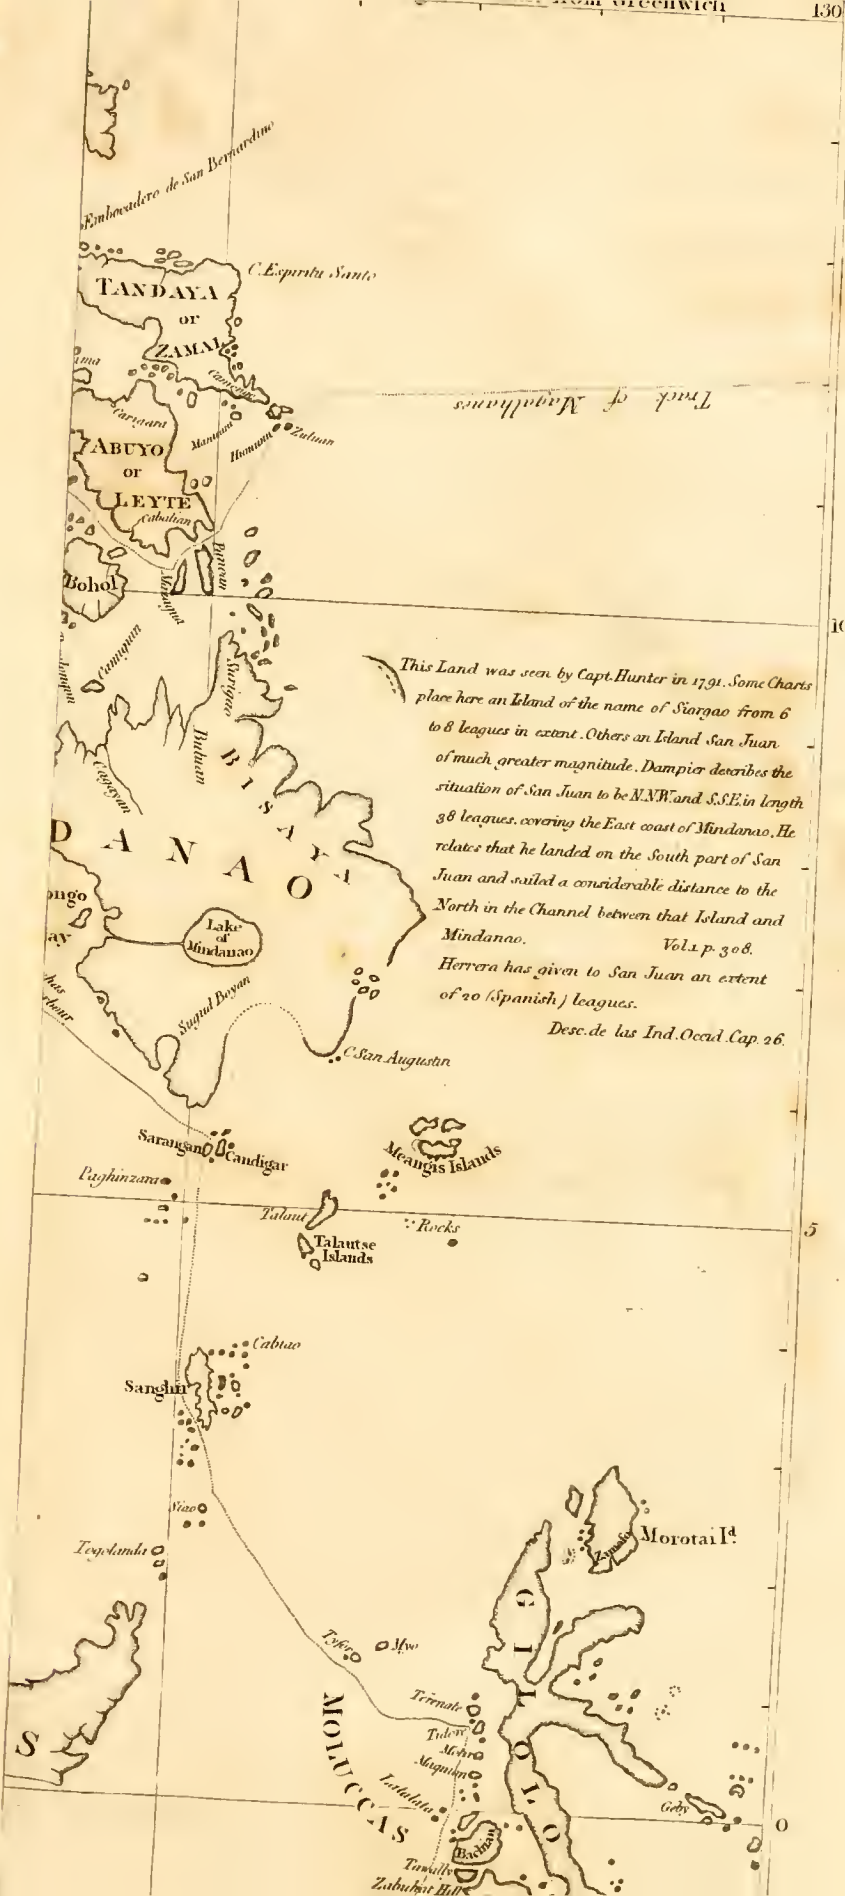 from Greenwich
130
Embocadero de San Bernardino
C. Espiritu Santo
TANDAYA
or
ZAMAL
Track of Magalhanes
Carigara
Zuluan
ABUYO
or
LEYTE
Cabalian
Panoan
Bohol
10
Surigao
Butuan
Cagayan
BISAYA
DANAO
This Land was seen by Capt. Hunter in 1791. Some Charts
place here an Island of the name of Siargao from 6
to 8 leagues in extent. Others an Island San Juan
of much greater magnitude. Dampier describes the
situation of San Juan to be N.NW. and S.S.E. in length
38 leagues. covering the East coast of Mindanao. He
relates that he landed on the South part of San
Juan and sailed a considerable distance to the
North in the Channel between that Island and
Mindanao. Vol. 1. p. 308.
Herrera has given to San Juan an extent
of 20 (Spanish) leagues.
Desc. de las Ind. Occid. Cap. 26.
Lake
of
Mindanao
Sugud Boyan
C. San Augustin
Sarangan
Candigar
Meangis Islands
Paghinzara
Talaut
Rocks
5
Talautse
Islands
Cabiao
Sanghir
Siao
Tagolanda
Morotai Id.
Zamafo
Tyfore
Myo
GILOLO
Terenate
Tidore
MOLUCCAS
Lattalata
Geby
0
S
Bachian
Tawally
Zabubat Hill